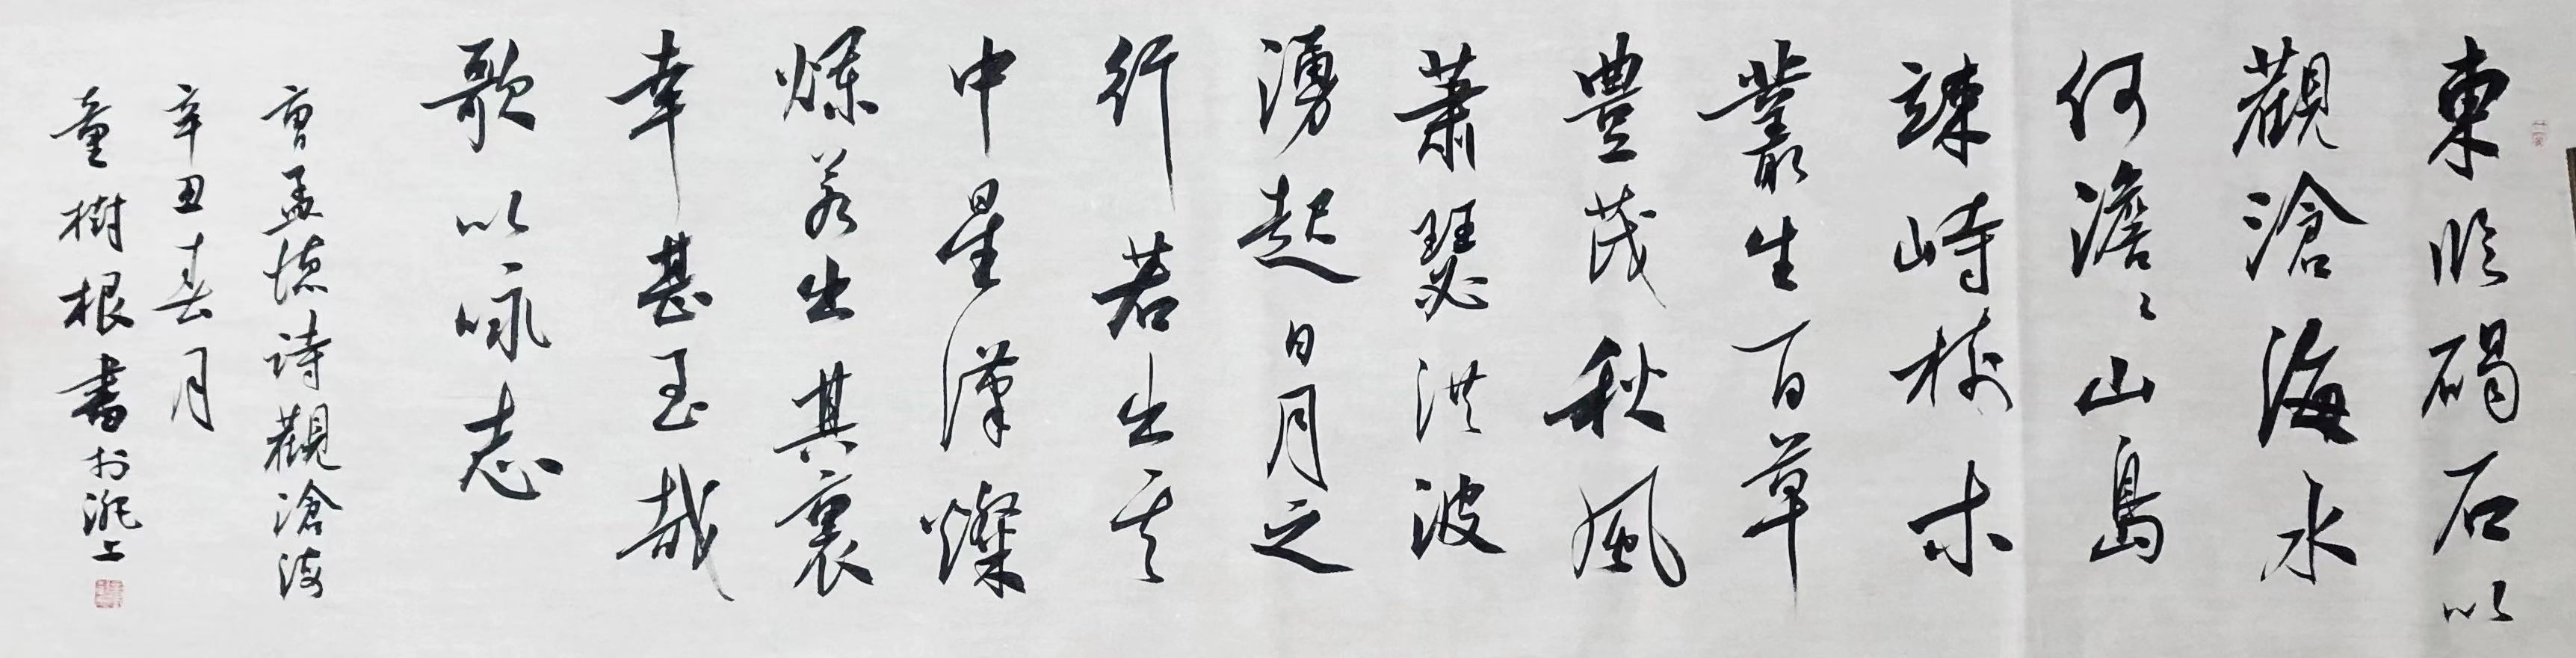 東临碣石以
觀滄海水
何澹々山島
竦峙樹木
叢生百草
豐茂秋風
蕭瑟洪波
湧起日月之
行若出其
中星漢燦
爛若出其裏
幸甚至哉
歌以咏志
曹孟德詩觀滄海
辛丑春月
童樹根書於滬上